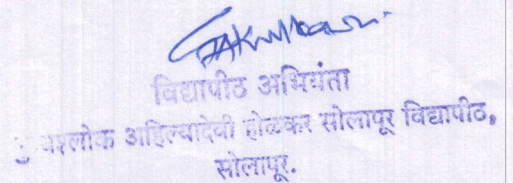 विद्यापीठ अभियंता
पुण्यश्लोक अहिल्यादेवी होळकर सोलापूर विद्यापीठ,
सोलापूर.